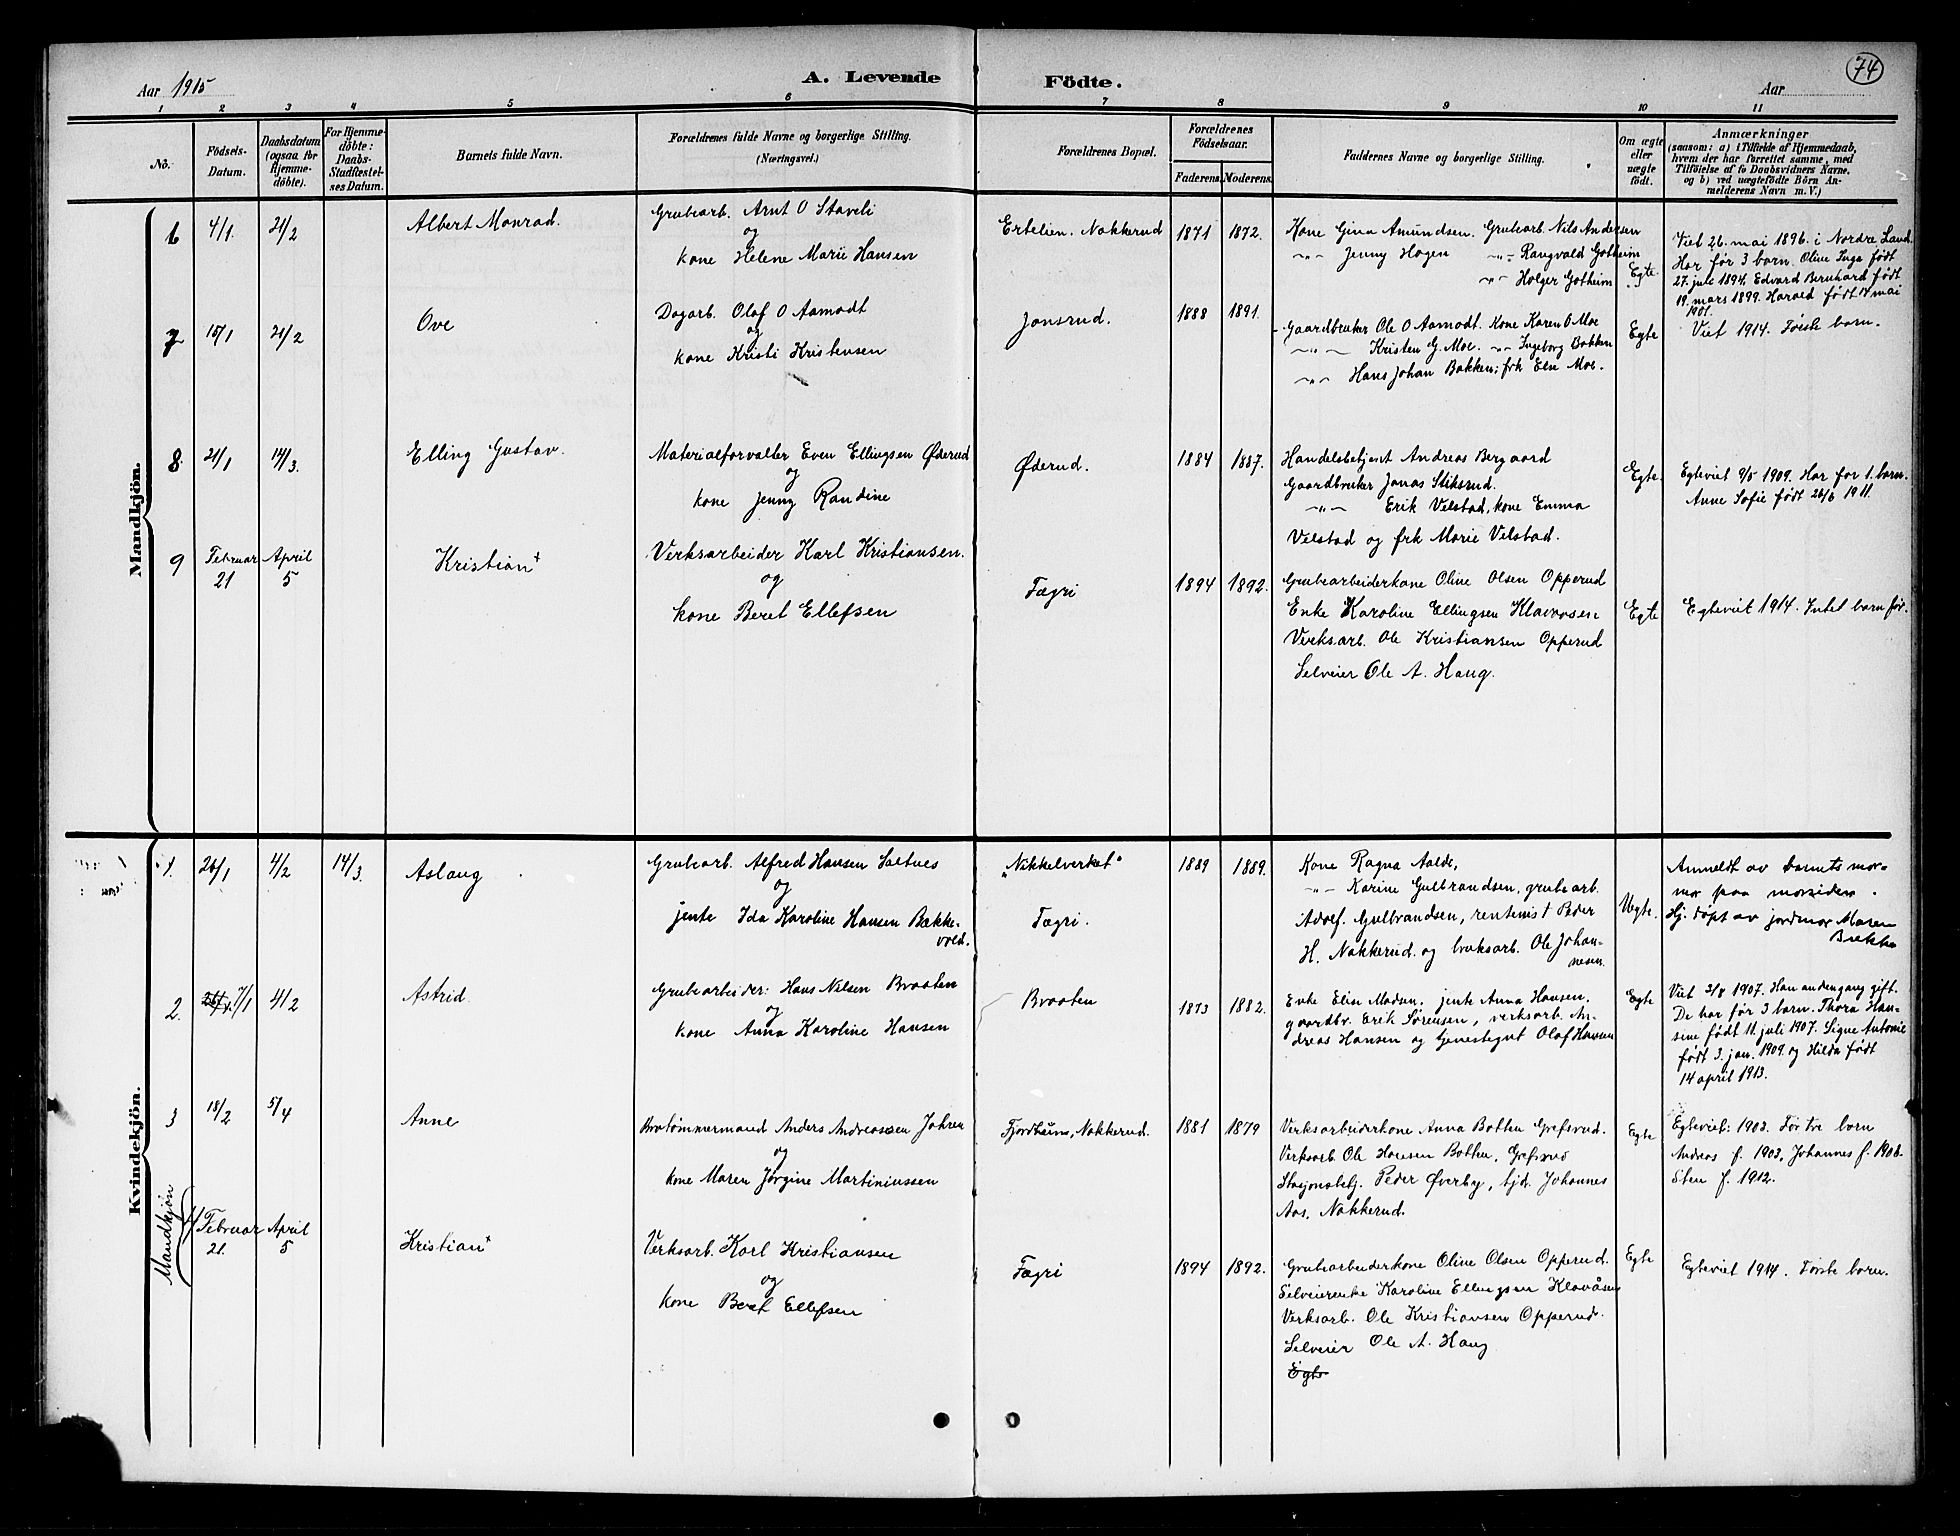 74
Aar 1915
A. Levende Födte.
Aar
1 2 3 4 5 6 7 8 9 10 11
No.
Födsels-Datum.
Daabsdatum (ogsaa for Hjemme-döbte).
For Hjemme-döbte: Daabs-Stadfæstel-ses Datum.
Barnets fulde Navn.
Forældrenes fulde Navne og borgerlige Stilling.
(Næringsvei.)
Forældrenes Bopæl.
Forældrenes Födselsaar.
Faderens. Moderens.
Faddernes Navne og borgerlige Stilling.
Om ægte eller uægte født.
Anmærkninger
(saasom: a) i Tilfælde af Hjemmedaab,
hvem der har forrettet samme, med
Tilföielse af to Daabsvidners Navne,
og b) ved uægtefödte Börn An-
melderens Navn m. V.)
Mandkjön.
6 4/1 21/2 Albert Monrad.
Grubearb. Arnt O Staveli
og
kone Helene Marie Hansen
Ertelien. Nakkerud 1871 1872.
Kone Gina Amundsen. Grubearb. Nils Andersen
-"- Jenny Hagen -"- Rangvald Gotheim
-"- Holger Gotheim
Egte
Viet 26. mai 1896. i Nordre Land.
Har før 3 barn. Oline Inga født
27. juli 1894, Edvard Bernhard født
19. mars 1899. Harald født 14 mai
1901.
7 15/1 21/2 Ove
Dagarb. Olaf O Aamodt
og
kone Kristi Kristensen
Jonsrud. 1888 1891.
Gaardbruker Ole O Aamodt. Kone Karen O Moe
-"- Kristen G. Moe. -"- Ingeborg Bakken
-"- Hans Johan Bakken; frk Else Moe.
Egte
Viet 1914. Første barn.
8. 21/1 14/3. Elling Gustav.
Materialforvalter Even Ellingsen Øderud
og
kone Jenny Randine
Øderud. 1884 1887.
Handelsbetjent Andreas Bergaard
Gaardbruker Jonas Stiksrud.
-"- Erik Velstad, kone Emma
Velstad og frk Marie Velstad.
Egte.
Egteviet 9/5 1909. Har for 1. barn.
Anne Sofie født 26/6 1911.
9 Februar 21 April 5 Kristian+
Verksarbeider Karl Kristiansen.
og
kone Beret Ellefsen
Fægri 1894 1892.
Grubearbeiderkone Oline Olsen Opperud
Enke Karoline Ellingsen Klavaasen
Verksarb. Ole Kristiansen Opperud
Selveier Ole A. Haug.
Egte
Egteviet 1914. Intet barn før.
Kvindekjön.
1. 26/1 4/2 14/3 Aslaug
Grubearb. Alfred Hansen Saetues
og
jente Ida Karoline Hansen Bække-
vold.
"Nikkelverket" Fægri. 1889 1889.
Kone Ragna Aalde,
-"- Karine Gulbrandsen, grubearb.
Adolf. Gulbrandsen, rentenist Peder
H. Nakkerud. og bruksarb. Ole Johan-
nesen.
Uegte.
Anmeldt av barnets mor-
mor paa morsiden.
Hj. døpt av jordmor Maren
Brekke
2. 7/1 4/2 Astrid.
Grubearbeider: Hans Nilsen Braaten
og
kone Anna Karoline Hansen
Braaten 1873 1882.
Enke Elise Madsen, jente Anna Hansen,
gaardbr. Erik Sørensen, verksarb. An-
dreas Hansen og tjenestegut Olaf Hansen
Egte
Viet 3/8 1907. Han andengang gift.
De har før 3 barn. Thora Han-
sine født 11. juli 1907. Signe Antonie
født 3. jan. 1909. og Hilda født
14 april 1913.
3 18/2 5/4 Anne
Brotømmermand Anders Andreassen Johren
og
kone Maren Jørgine Martiniussen
Fjordheim, Nakkerud. 1881 1879
Verksarbeiderkone Anna Botten Grefsrud.
Verksarb Ole Hansen Botten, Grefsrud
Stasjonsbetj. Peder Øverby, tjd. Johannes
Aas, Nakkerud.
Egte
Egteviet: 1903. Før tre barn
Andreas f. 1903, Johannes f. 1908.
Sten f. 1912.
Mandkjøn
Februar 21. April 5 Kristian+
Verksarb. Karl Kristiansen
og
kone Beret Ellefsen
Fægri 1894 1892.
Grubearbeiderkone Oline Olsen Opperud.
Selveierenke Karoline Ellingsen Klavåsen
Verksarb. Ole Kristiansen Opperud.
Selveier Ole A. Haug
Egte
Egte
Egteviet 1914. Første barn.